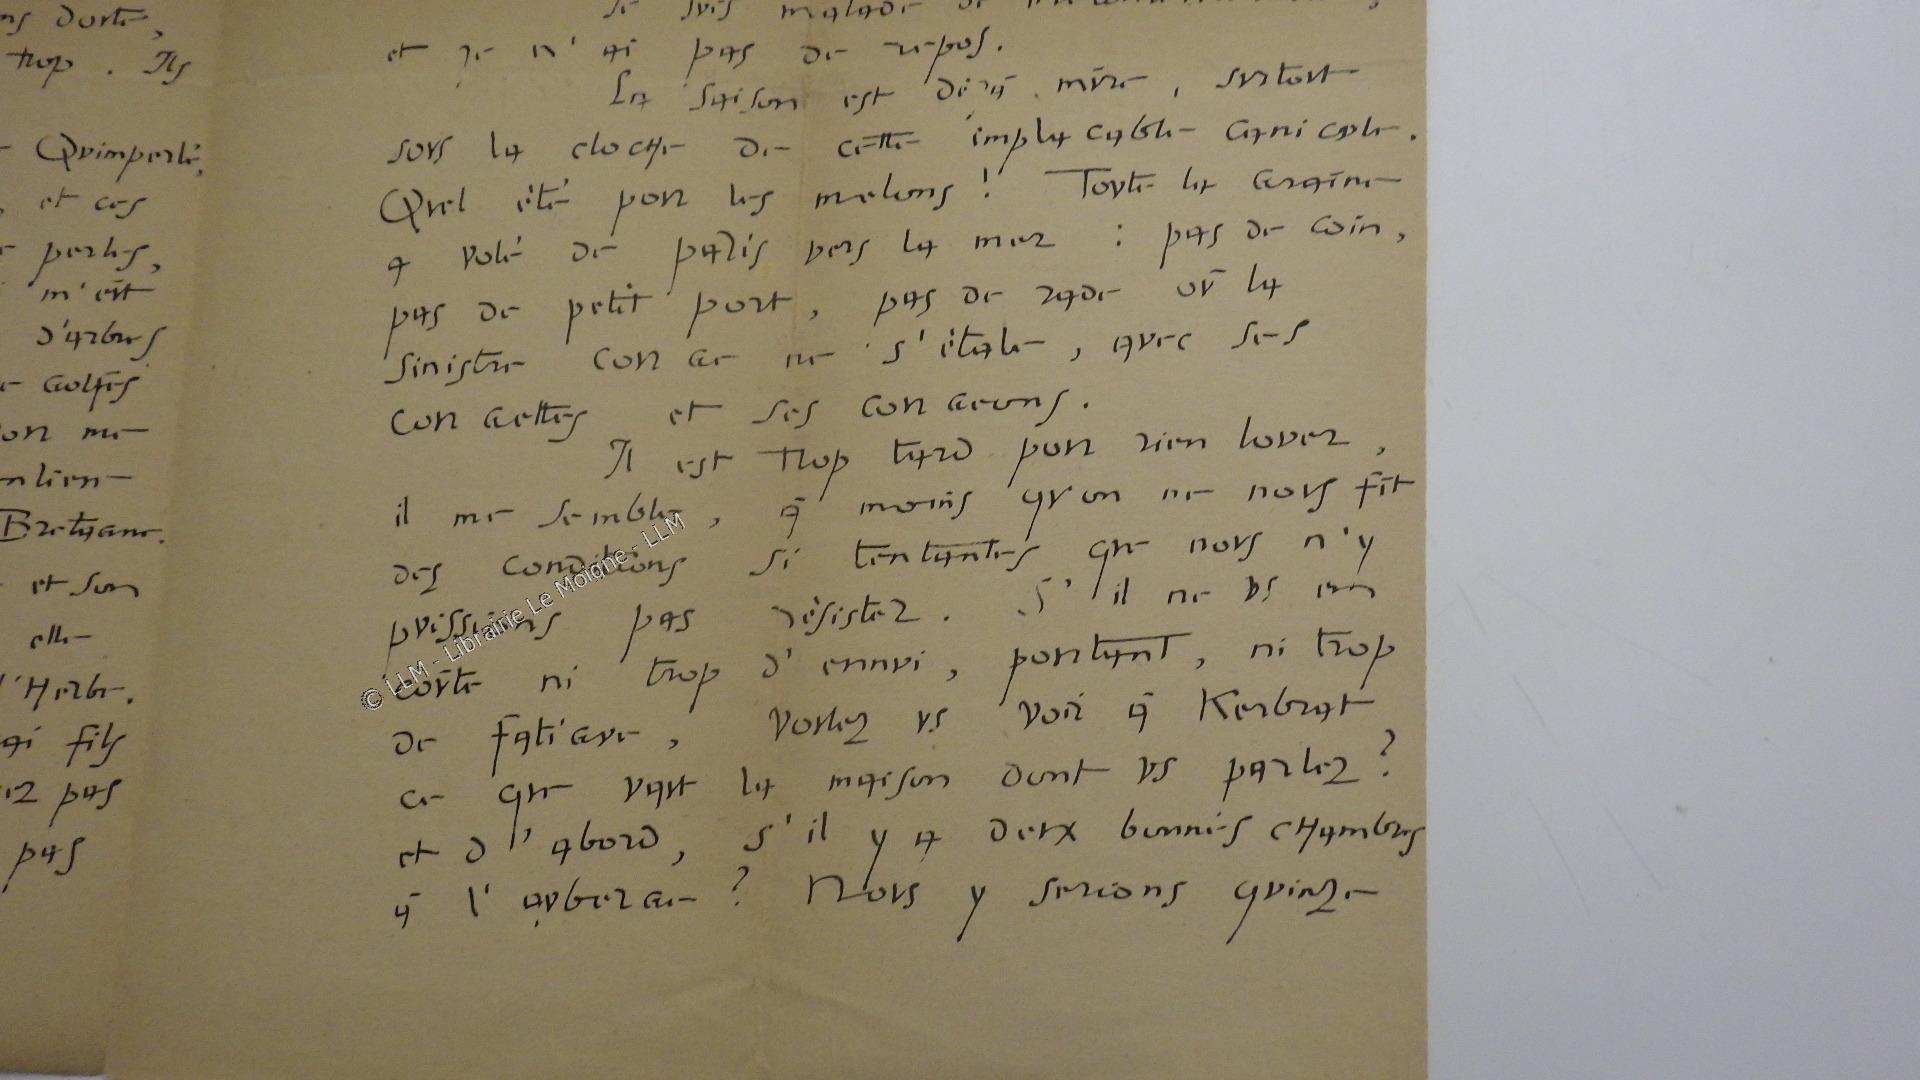 ns doute,
trop. Ils
Quimperlé,
, et ces
perles,
m'est
d'arbres
golfes
on me
mlien-
Bretagne.
et son
elle
l'Herbe.
ai fils
ez pas
pas
Je suis malade de
et je n'ai pas de repos.
La saison est déjà mûre, surtout
sous la cloche de cette implacable canicule.
Quel été pour les melons ! Toute la graine
a volé de paris vers la mer : pas de coin,
pas de petit port, pas de rade où la
sinistre courge ne s'étale, avec ses
courgettes et ses courgeons.
Il est trop tard pour rien louer,
il me semble, à moins qu'on ne nous fît
des conditions si tentantes que nous n'y
puissions pas résister. S'il ne vs en
coûte ni trop d'ennui, pourtant, ni trop
de fatigue, voulez vs voir à Kerbrat
ce que vaut la maison dont vs parlez ?
et d'abord, s'il y a deux bonnes chambres
à l'auberge ? Nous y serions quinze
© LLM - Librairie Le Moigne - LLM